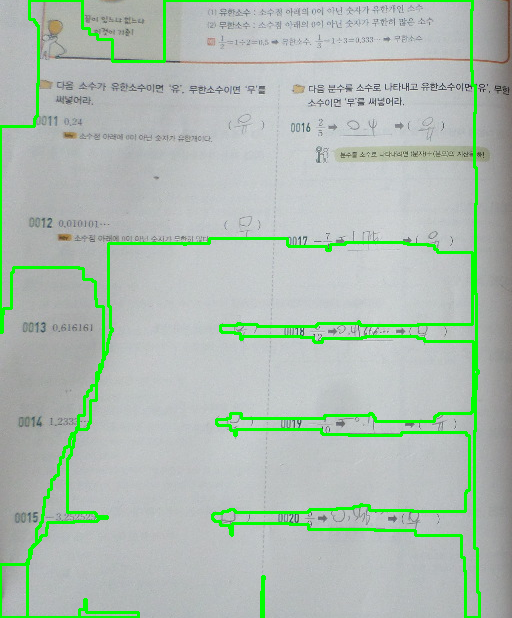 끝이 있느냐 없느냐
이것이 기준!
(1) 유한소수 : 소수점 아래의 0이 아닌 숫자가 유한개인 소수
(2) 무한소수 : 소수점 아래의 0이 아닌 숫자가 무한히 많은 소수
1/2=1÷2=0.5 ➡ 유한소수, 1/3=1÷3=0.333⋯ ➡ 무한소수
다음 소수가 유한소수이면 '유', 무한소수이면 '무'를
써넣어라.
0011 0.24 ( 유 )
소수점 아래에 0이 아닌 숫자가 유한개이다.
0012 0.010101⋯ ( 무 )
소수점 아래에 0이 아닌 숫자가 무한히 많다.
0013 0.616161
0014 1.2333⋯
0015 -3.252525
다음 분수를 소수로 나타내고 유한소수이면 '유', 무한
소수이면 '무'를 써넣어라.
0016 2/5 ➡ 0.4 ➡ ( 유 )
분수를 소수로 나타내려면 (분자)÷(분모)를 계산해 봐!
0017 ➡ ➡ ( 유 )
0018 ➡ ➡
0019 ➡ ➡ ( 유 )
0020 ➡ ➡